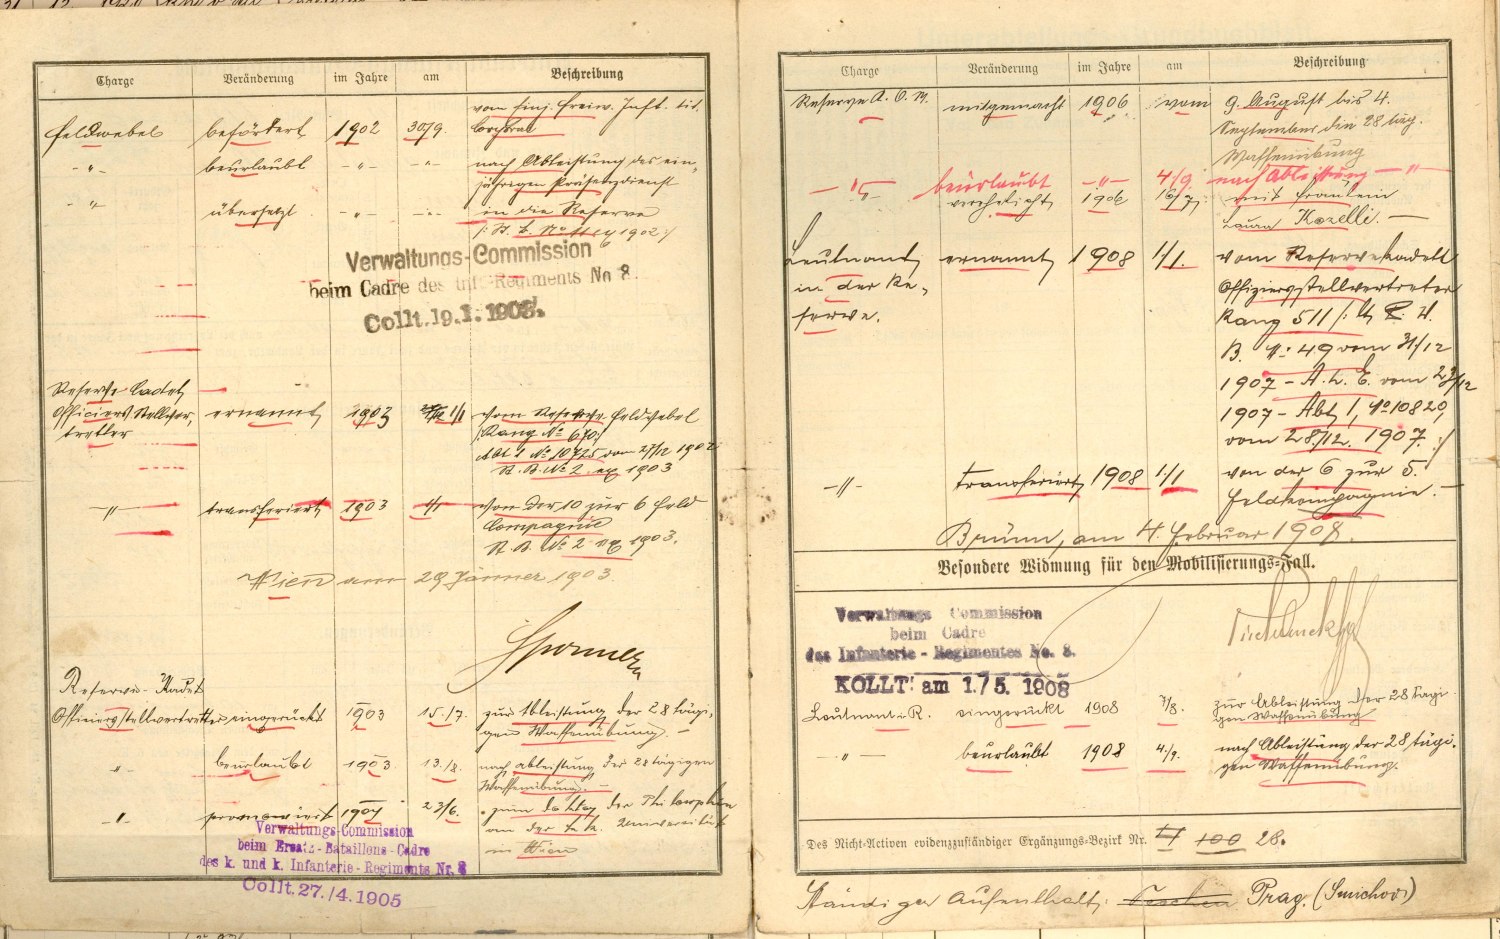 Charge Veränderung im Jahre am Beschreibung
vom Einj. Freiw. Inft. tit.
Feldwebel befördert 1902 30/9. Corporal
-"- beurlaubt -"- -"- nach Ableistung des ein-
jährigen Präsenzdienst
-"- übersetzt -"- -"- in die Reserve
1902
Verwaltungs-Commission
beim Cadre des Inft-Regiments No 8.
Collt. 19.1.1903.
Reserve Cadet
Officiers Stellver- ernannt 1903 1/1 vom Reserve Feldwebel
treter Rang No 670
Abt 1 No 10725 vom 27/12 1902
R. B. No 2 ex 1903
-"- transferiert 1903 1/1 von der 10 zur 6 Feld
Compagnie
R. B. No 2 ex 1903.
Wien am 29 Jänner 1903
Reserve-Kadet
Offiziersstellvertreter eingerückt 1903 15./7. zur Ableistung der 28 tägi-
gen Waffenübung. -
" beurlaubt 1903 13./8. nach Ableistung der 28 tägigen
Waffenübung. -
" promoviert 1904 23/6. zum Doktor der Philosophie
an der k. k. Universität
in Wien
Verwaltungs-Commission
beim Ersatz-Bataillons-Cadre
des k. und k. Infanterie-Regiments Nr. 8
Collt. 27./4.1905
Charge Veränderung im Jahre am Beschreibung
Reserve mitgemacht 1906 vom 9. August bis 4.
September die 28 täg.
Waffenübung
-"- beurlaubt -"- 4/9. nach Ableistung -"-
verehelicht 1906 16/7. mit Fräulein
Laura Kozelli. -
Leutnant ernannt 1908 1/1. vom Reservekadett
in der Re- Offiziersstellvertreter
serve. Rang 511
B. No: 49 vom 31/12
1907 - A. h. E. vom 23/12
1907 - Abt 1, No 10820,
vom 28./12. 1907.
-"- transferiert 1908 1./1 von der 6 zur 5.
Feldkompagnie. -
Brünn, am 4. Februar 1908.
Besondere Widmung für den Mobilisierungs-Fall.
Verwaltungs Commission
beim Cadre
des Infanterie-Regimentes No. 8.
KOLLT: am 1./5. 1908
Leutnant i. R. eingerückt 1908 7/8. zur Ableistung der 28 tägi-
gen Waffenübung
-"- beurlaubt 1908 4./9. nach Ableistung der 28 tägi-
gen Waffenübung.
Des Nicht-Activen evidenzzuständiger Ergänzungs-Bezirk Nr. 100 28.
Ständiger Aufenthalt: Teschen Prag. (Smichov)